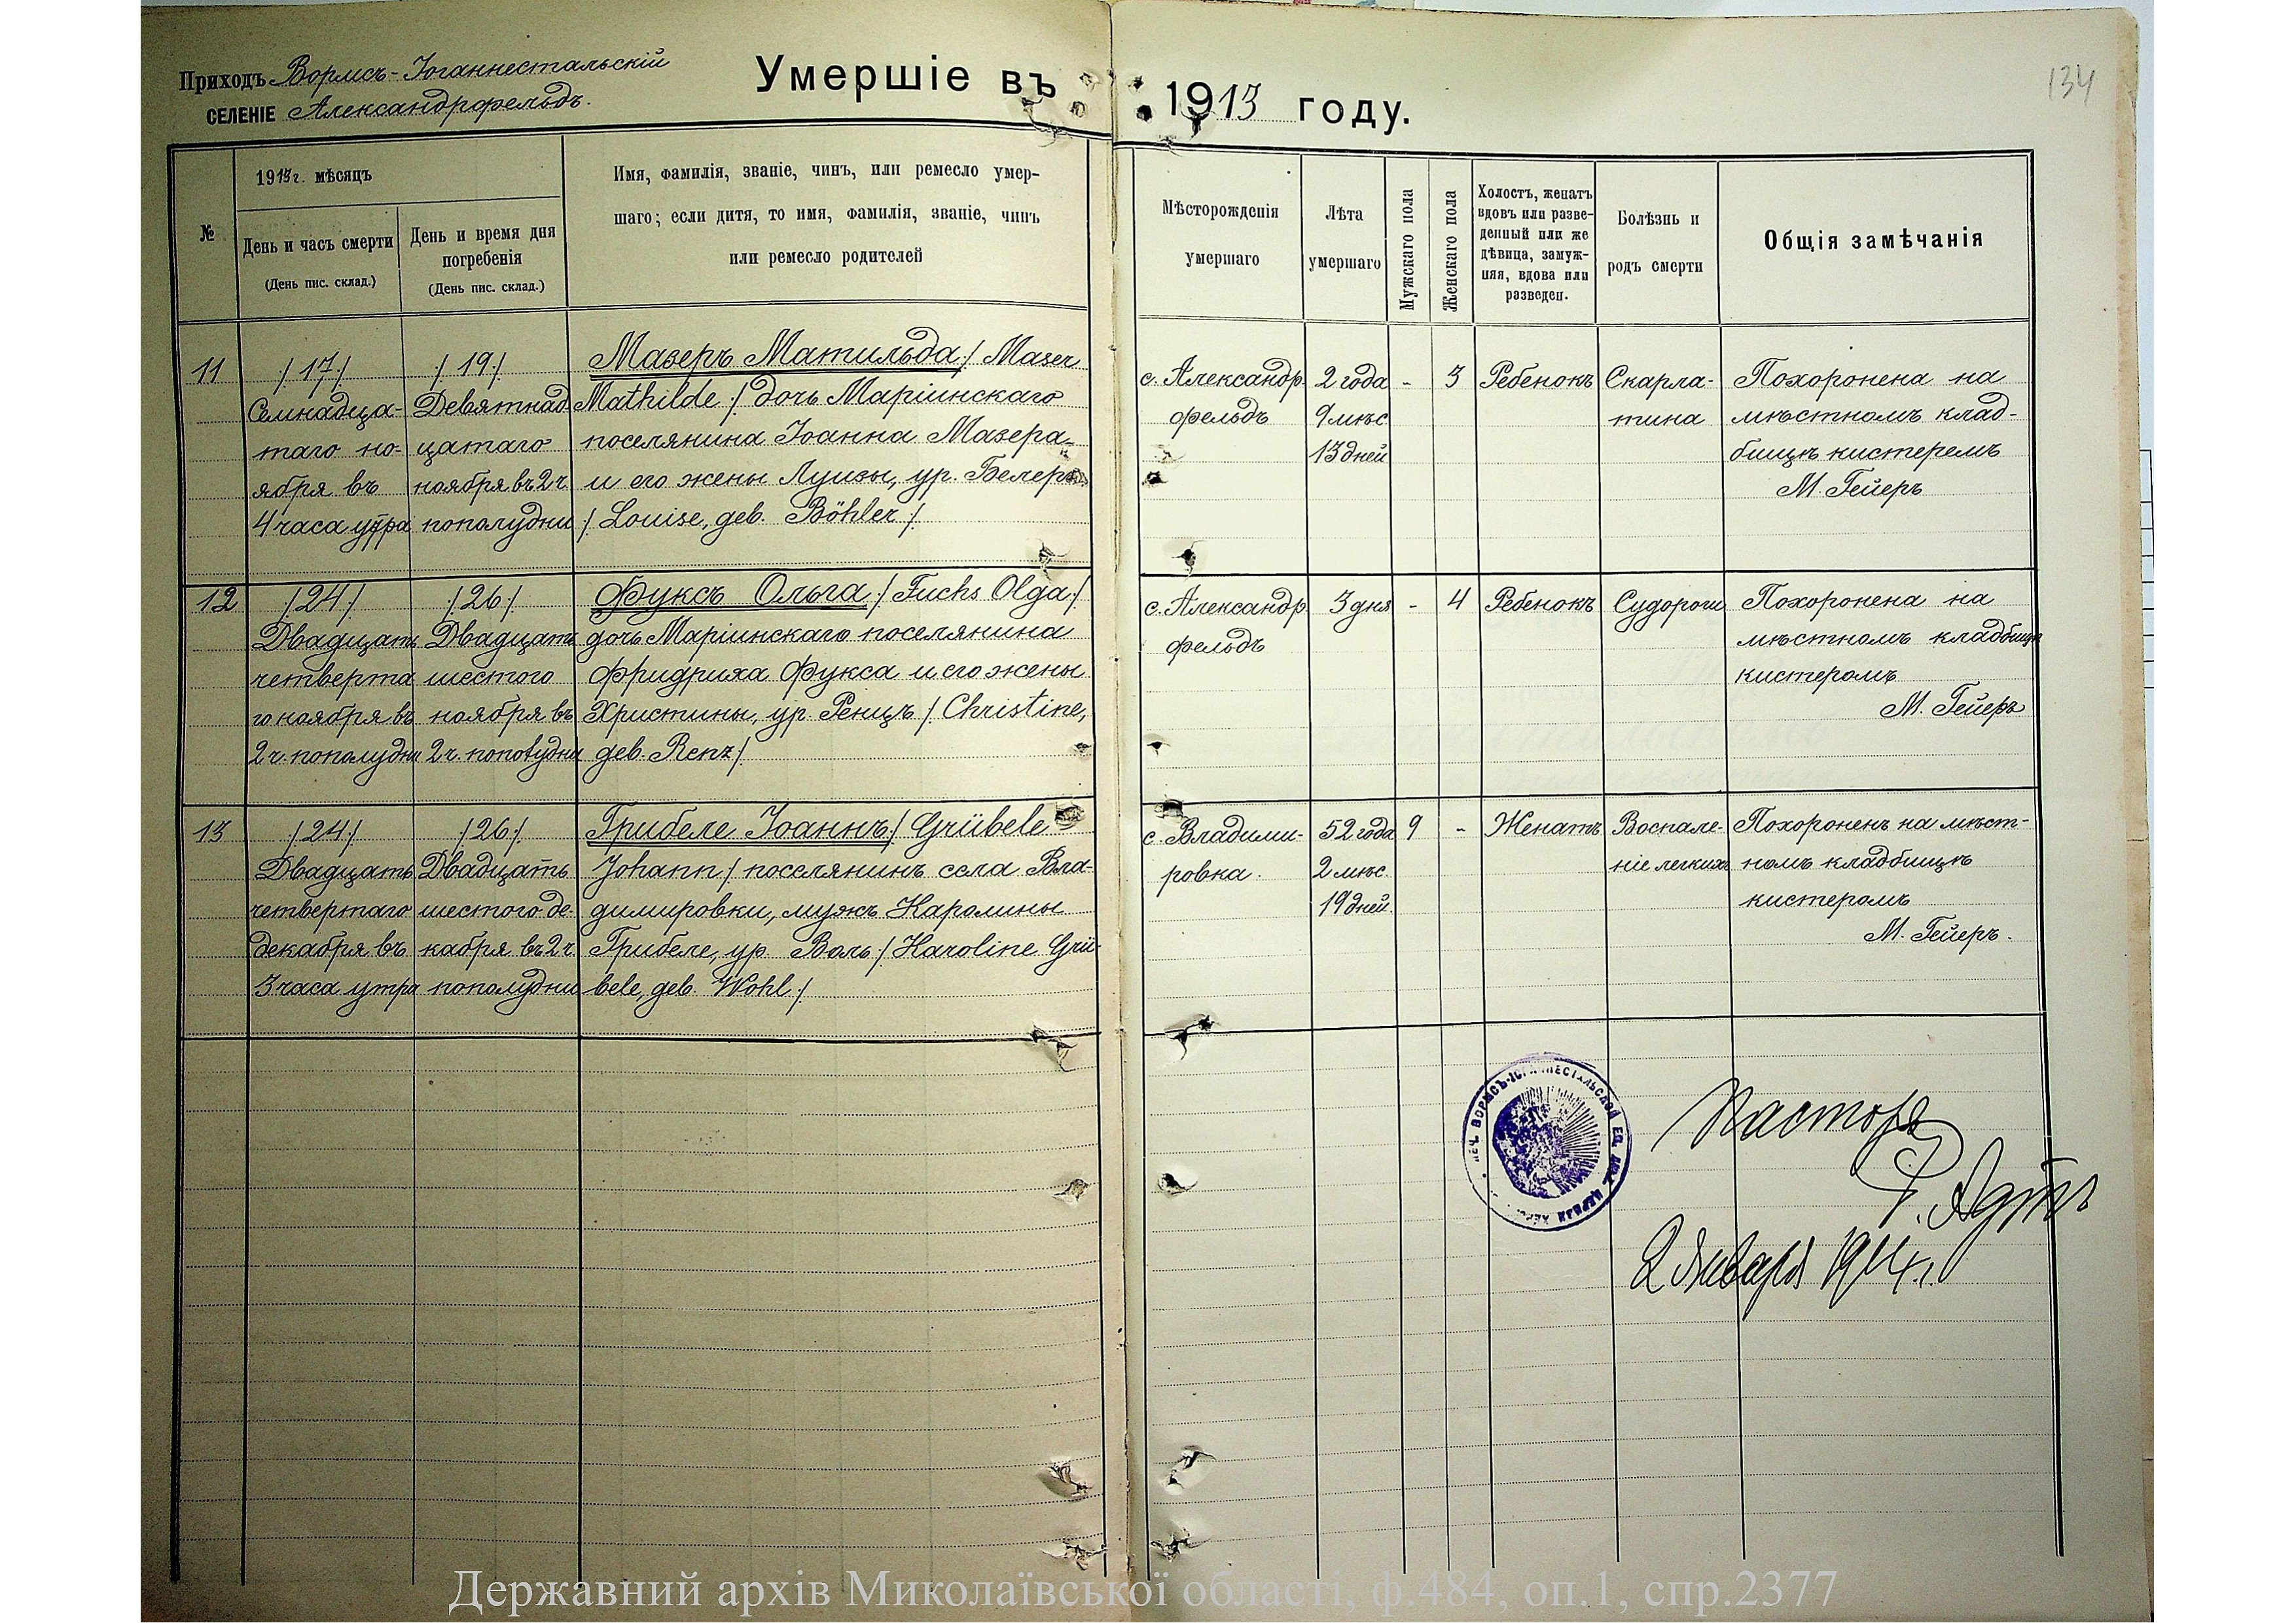 Приходъ Вормсъ-Іоганнестальскій
СЕЛЕНІЕ Александрфельдъ.
Умершіе въ 1913 году.
134
№
1913 г. мѣсяцъ
День и часъ смерти
(День пис. склад.)
День и время дня
погребенія
(День пис. склад.)
Имя, фамилія, званіе, чинъ, или ремесло умер-
шаго; если дитя, то имя, фамилія, званіе, чинъ
или ремесло родителей
Мѣсторожденія
умершаго
Лѣта
умершаго
Мужскаго пола
Женскаго пола
Холостъ, женатъ
вдовъ или разве-
денный или же
дѣвица, замуж-
няя, вдова или
разведен.
Болѣзнь и
родъ смерти
Общія замѣчанія
11
/17/
Семнадца-
таго но-
ября въ
4 часа утра
/19/
Девятнад
цатаго
ноября въ 2 ч.
пополудни
Мазеръ Матильда / Maser
Mathilde / дочь Маріинскаго
поселянина Іоанна Мазера
и его жены Луизы, ур. Белеръ
/ Louise, geb. Böhler /.
с. Александр
фельдъ
2 года
9 мѣс.
13 дней
-
3
Ребенокъ
Скарла-
тина
Похоронена на
мѣстномъ клад-
бищѣ кистеремъ
М. Гейеръ
12
/24/
Двадцать
четверта
го ноября въ
2 ч. пополудни
/26/
Двадцать
шестого
ноября въ
2 ч. пополудни
Фуксъ Ольга / Fuchs Olga /
дочь Маріинскаго поселянина
Фридриха Фукса и его жены
Христины, ур. Ренцъ / Christine,
geb. Renz /.
с. Александр.
фельдъ
3 дня
-
4
Ребенокъ
Судороги
Похоронена на
мѣстномъ кладбищѣ
кистеромъ
М. Гейеръ
13
/24/
Двадцать
четвертаго
декабря въ
3 часа утра
/26/
Двадцать
шестого де-
кабря въ 2 ч.
пополудни
Грибеле Іоаннъ / Grübele
Johann / поселянинъ села Вла-
димировки, мужъ Каролины
Грибеле, ур. Воль / Karoline Grü-
bele, geb. Wohl /
с. Владими-
ровка.
52 года
2 мѣс.
19 дней.
9
-
Женатъ
Воспале-
ніе легкихъ
Похороненъ на мѣст-
номъ кладбищѣ
кистеромъ
М. Гейеръ.
Пасторъ
2 Января 1914 г.
Державний архів Миколаївської області, ф.484, оп.1, спр.2377